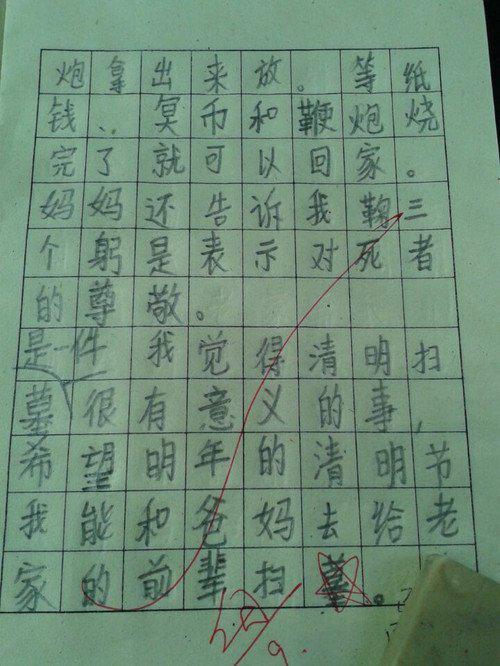 炮拿出来放。等纸
钱、冥币和鞭炮烧
完了就可以回家。
妈妈还告诉我鞠三
个躬是表示对死者
的尊敬。
是一件 我觉得清明扫
墓很有意义的事,
希望明年的清明节
我能和爸妈去给老
家的前辈扫墓。
9.